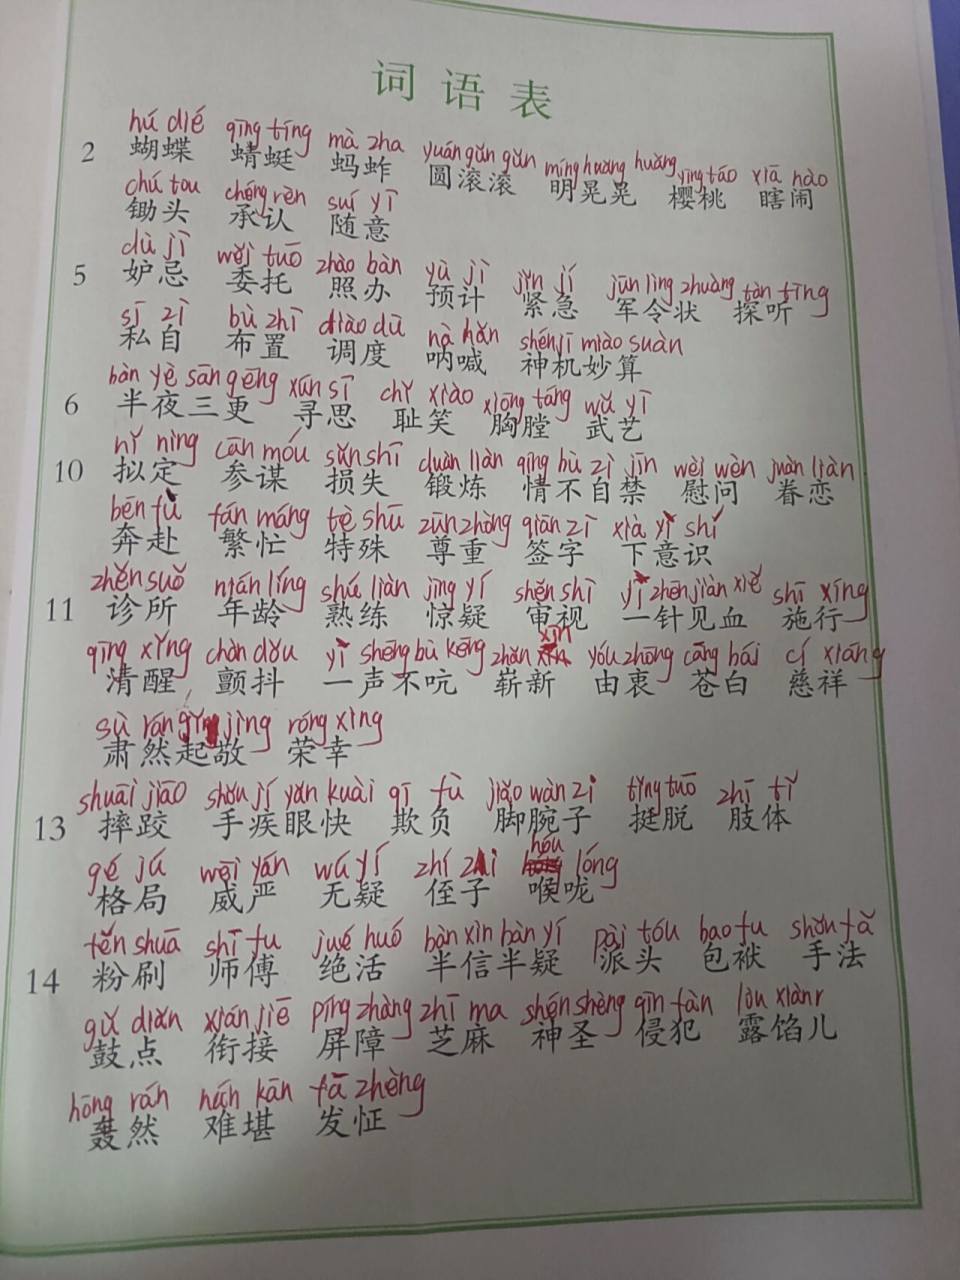 词语表
hú dié qīng tíng mà zha yuán gǔn gǔn míng huǎng huǎng yīng táo xiā nào
2 蝴蝶 蜻蜓 蚂蚱 圆滚滚 明晃晃 樱桃 瞎闹
chú tou chéng rèn suí yì
锄头 承认 随意
dù jì wěi tuō zhào bàn yù jì jǐn jí jūn lìng zhuàng tàn tīng
5 妒忌 委托 照办 预计 紧急 军令状 探听
sī zì bù zhì diào dù nà hǎn shén jī miào suàn
私自 布置 调度 呐喊 神机妙算
bàn yè sān gēng xún sī chǐ xiào xiōng táng wǔ yì
6 半夜三更 寻思 耻笑 胸膛 武艺
nǐ nìng cān móu sǔn shī duàn liàn qíng bù zì jīn wèi wèn juàn liàn
10 拟定 参谋 损失 锻炼 情不自禁 慰问 眷恋
bēn fù fán máng tè shū zūn zhòng qiān zì xià yì shí
奔赴 繁忙 特殊 尊重 签字 下意识
zhěn suǒ nián líng shú liàn jīng yí shěn shì yì zhēn jiàn xiě shī xíng
11 诊所 年龄 熟练 惊疑 审视 一针见血 施行
qīng xǐng chàn dǒu yì shēng bù kēng zhǎn xīn yóu zhōng cāng bái cí xiáng
清醒 颤抖 一声不吭 崭新 由衷 苍白 慈祥
sù rán jìng róng xìng
肃然起敬 荣幸
shuāi jiāo shǒu jí yǎn kuài qī fù jiǎo wàn zi tǐng tuō zhī tǐ
13 摔跤 手疾眼快 欺负 脚腕子 挺脱 肢体
gé jú wēi yán wú yí zhí zi hóu lóng
格局 威严 无疑 侄子 喉咙
fěn shuā shī fu jué huó bàn xìn bàn yí pài tóu bao fu shǒu fǎ
14 粉刷 师傅 绝活 半信半疑 派头 包袱 手法
gǔ diǎn xián jiē píng zhàng zhī ma shén shèng qīn fàn lòu xiànr
鼓点 衔接 屏障 芝麻 神圣 侵犯 露馅儿
hōng rán nán kān fā zhèng
轰然 难堪 发怔